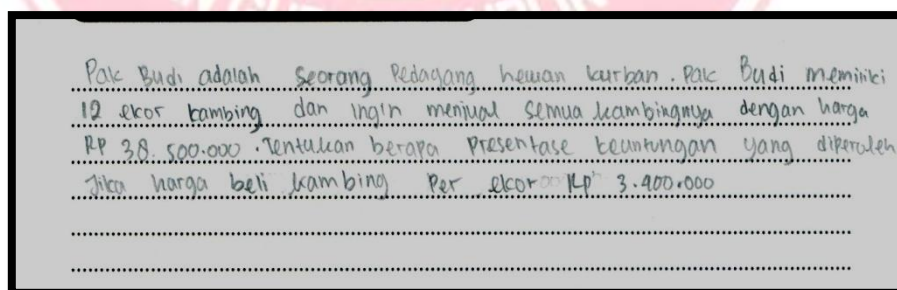 Pak Budi adalah seorang Pedagang hewan kurban. Pak Budi memiliki
12 ekor kambing dan ingin menjual semua kambingnya dengan harga
RP 38.500.000. Tentukan berapa Presentase keuntungan yang diperoleh
Jika harga beli kambing Per ekor Rp 3.400.000